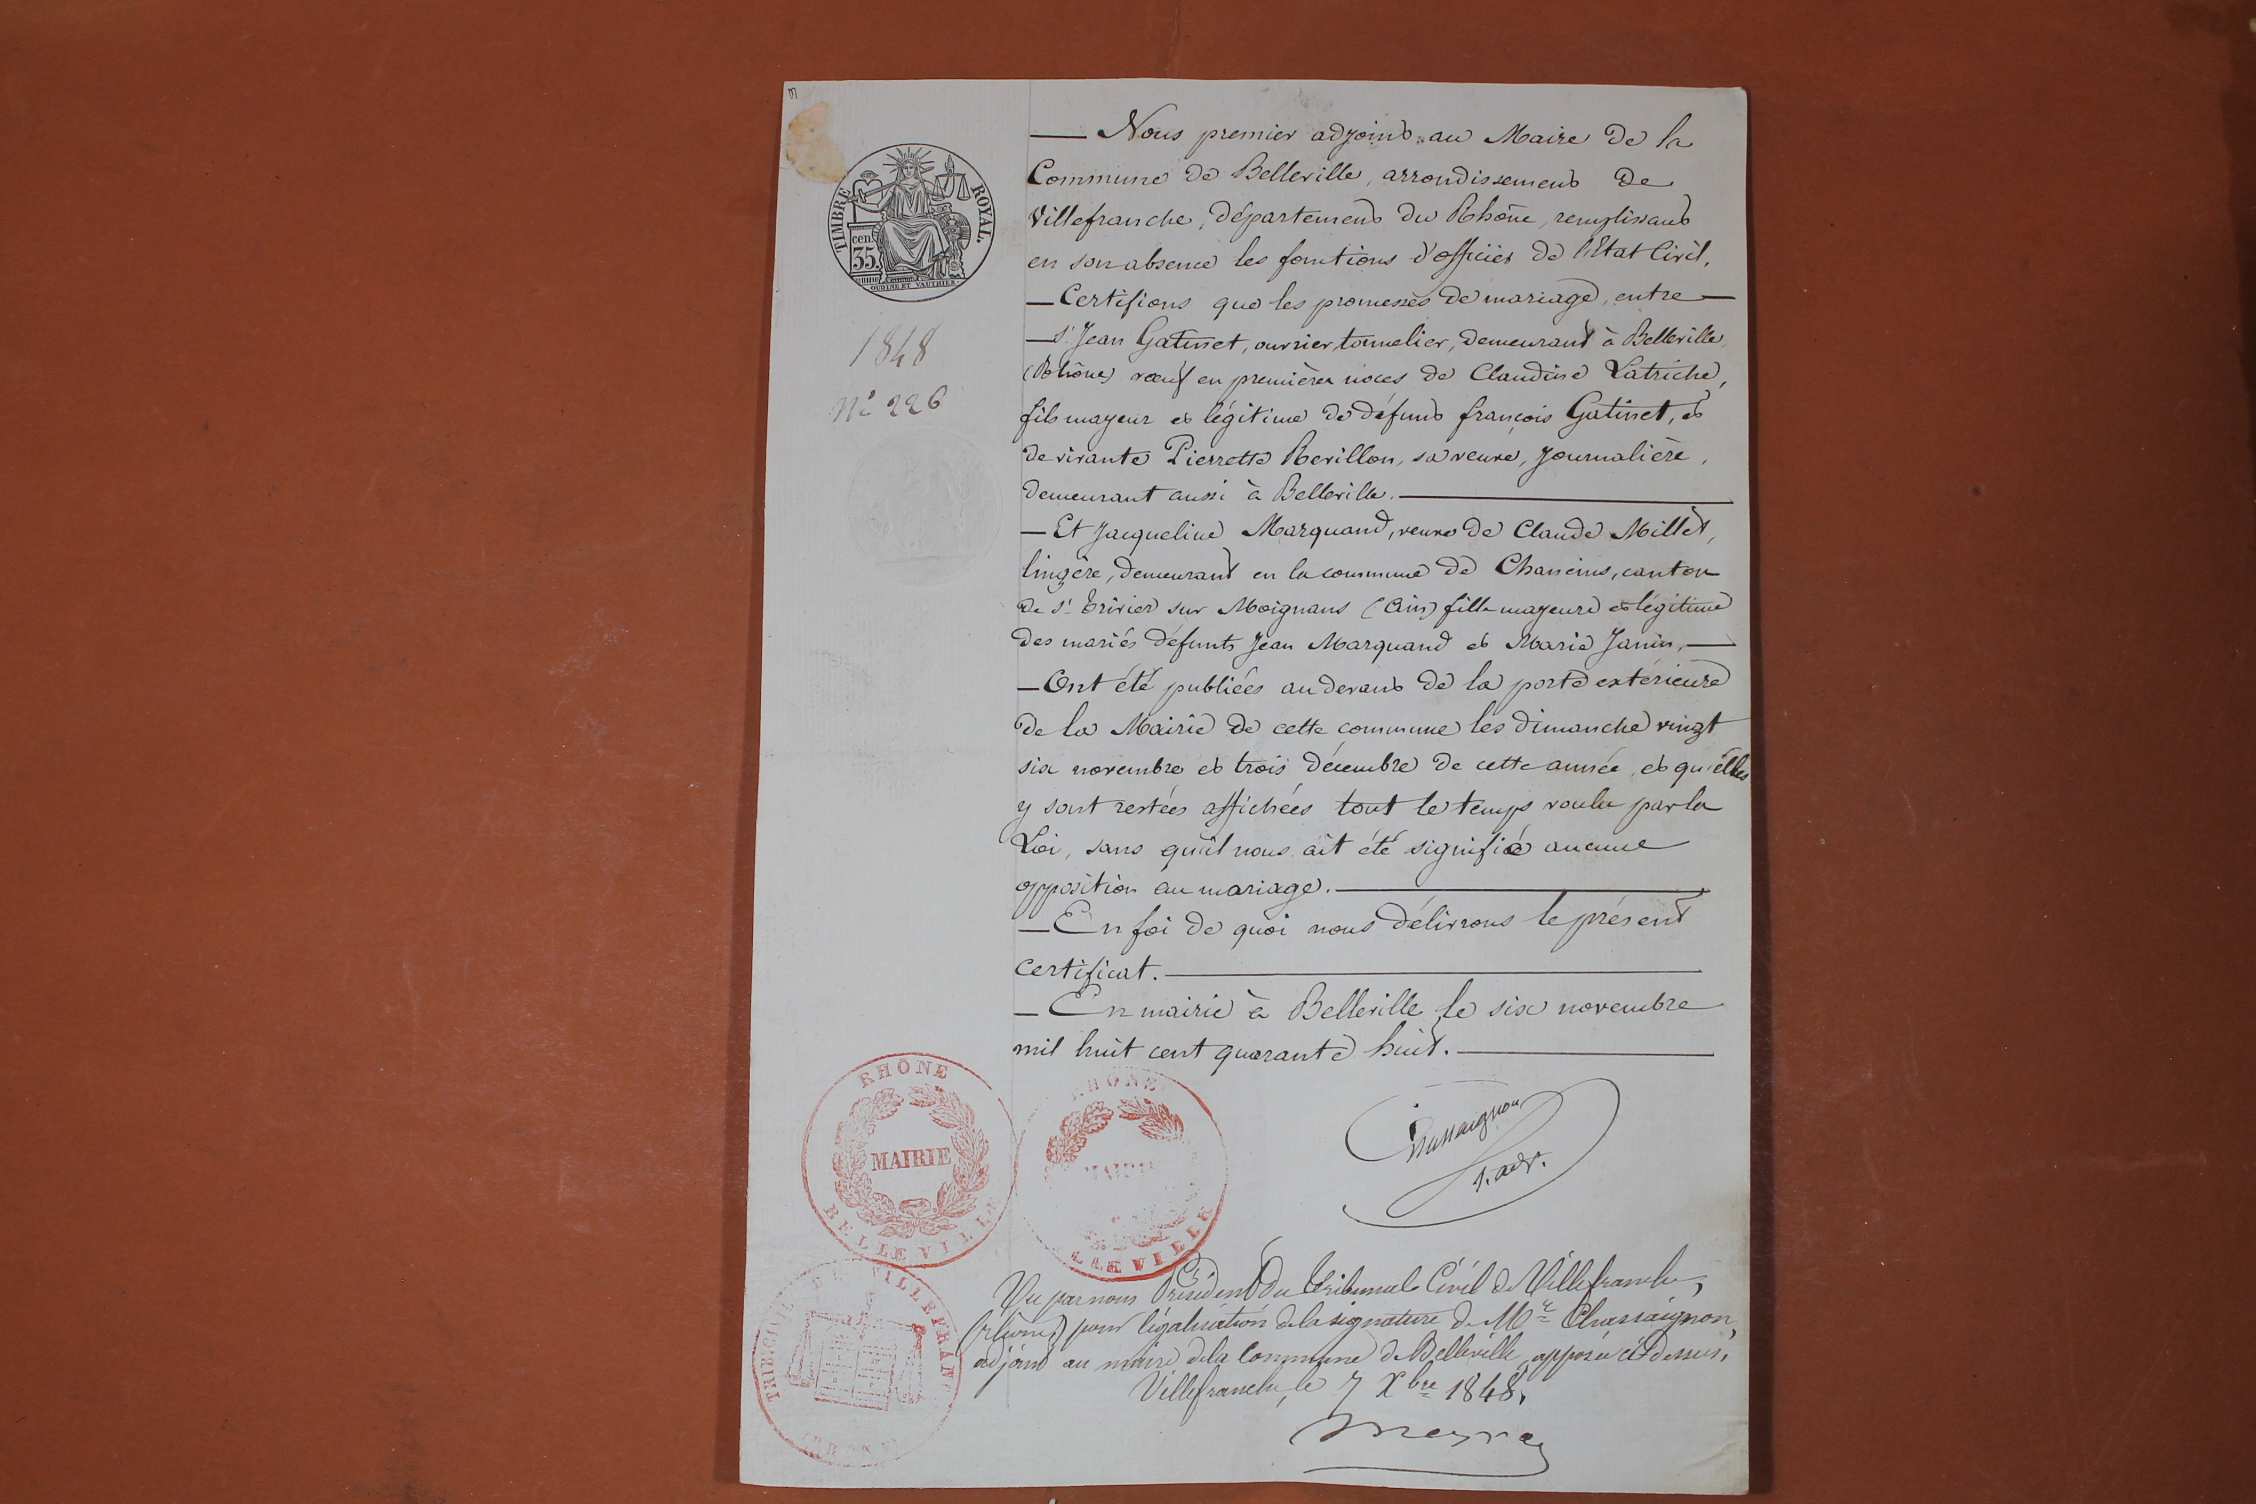 TIMBRE ROYAL.
cen.
35.
OUDINE ET VAUTHIER
1848
Nº 226
— Nous premier adjoint au Maire de la
Commune de Belleville, arrondissement de
Villefranche, département du Rhône, remplissant
en son absence les fonctions d'officier de l'Etat Civil.
— Certifions que les promesses de mariage, entre —
— Sr. Jean Gatinet, ouvrier, tonnelier, demeurant à Belleville,
(Rhône) veuf en premières noces de Claudine Latriche,
fils mayeur et légitime de défunt françois Gatinet, et
de vivante Pierrette Revillon, sa veuve, Journalière,
demeurant aussi à Belleville.
— Et Jacqueline Marquand, veuve de Claude Millet,
lingère, demeurant en la commune de Chaneins, canton
de St. Trivier sur Moignans (Ain) fille mayeure et légitime
des mariés défunts Jean Marquand et Marie Janin, —
— Ont été publiées au devant de la porte extérieure
de la Mairie de cette commune les dimanche vingt
six novembre et trois décembre de cette année, et qu'elles
y sont restées affichées tout le temps voulu par la
Loi, sans qu'il nous ait été signifié aucune
opposition au mariage.
— En foi de quoi nous délivrons le présent
certificat.
— En mairie à Belleville le six novembre
mil huit cent quarante huit.
RHÔNE
MAIRIE
BELLEVILLE
RHÔNE
MAIRIE
ELLEVILLE
Chassaignon
1. adj.
Vu par nous Président du Tribunal Civil de Villefranche,
(rhône) pour légalisation de la signature de Mr. Chassaignon,
adjoint au maire de la Commune de Belleville, apposée ci-dessus.
Villefranche, le 7 Xbre 1848.
TRIB. CIVIL DE VILLEFRANC